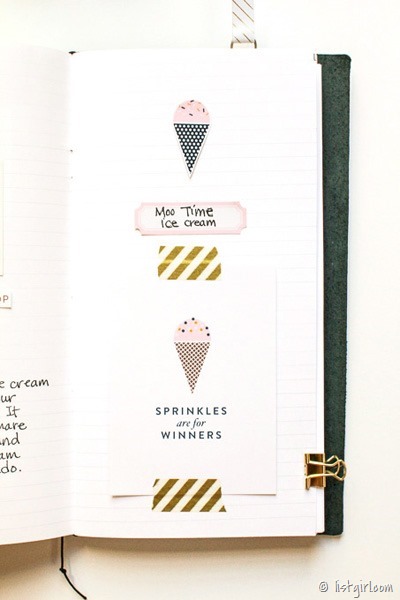 OP
e cream
ur
It
hare
and
am
do.
Moo Time
ice cream
SPRINKLES
are for
WINNERS
© listgirl.com